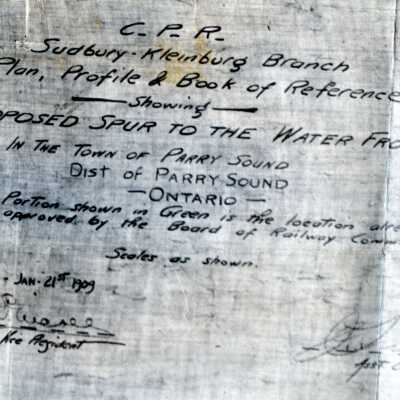 C.P.R.
Sudbury-Kleinburg Branch
Plan, Profile & Book of Reference
Showing
POSED SPUR TO THE WATER FRO
IN THE TOWN OF PARRY SOUND
DIST OF PARRY SOUND
ONTARIO
Portion shown in Green is the location alre
approved by the Board of Railway Comm
Scales as shown.
JAN. 21st 1909
Vice President
Asst